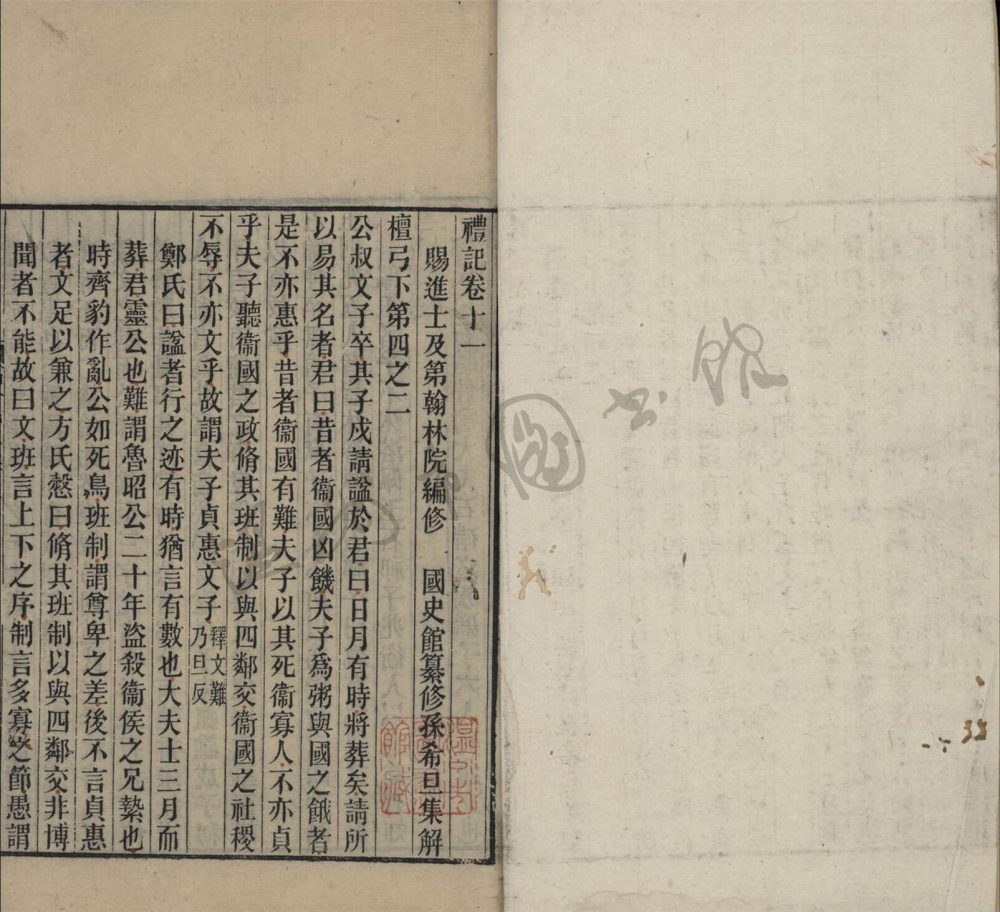 禮記卷十一
賜進士及第翰林院編修　國史館纂修孫希旦集解
檀弓下第四之二
公叔文子卒其子戍請謚於君曰日月有時將葬矣請所
以易其名者君曰昔者衞國凶饑夫子爲粥與國之餓者
是不亦惠乎昔者衞國有難夫子以其死衞寡人不亦貞
乎夫子聽衞國之政脩其班制以與四鄰交衞國之社稷
不辱不亦文乎故謂夫子貞惠文子釋文難
乃旦反
鄭氏曰謚者行之迹有時猶言有數也大夫士三月而
葬君靈公也難謂魯昭公二十年盜殺衞侯之兄縶也
時齊豹作亂公如死鳥班制謂尊卑之差後不言貞惠
者文足以兼之方氏慤曰脩其班制以與四鄰交非博
聞者不能故曰文班言上下之序制言多寡之節愚謂